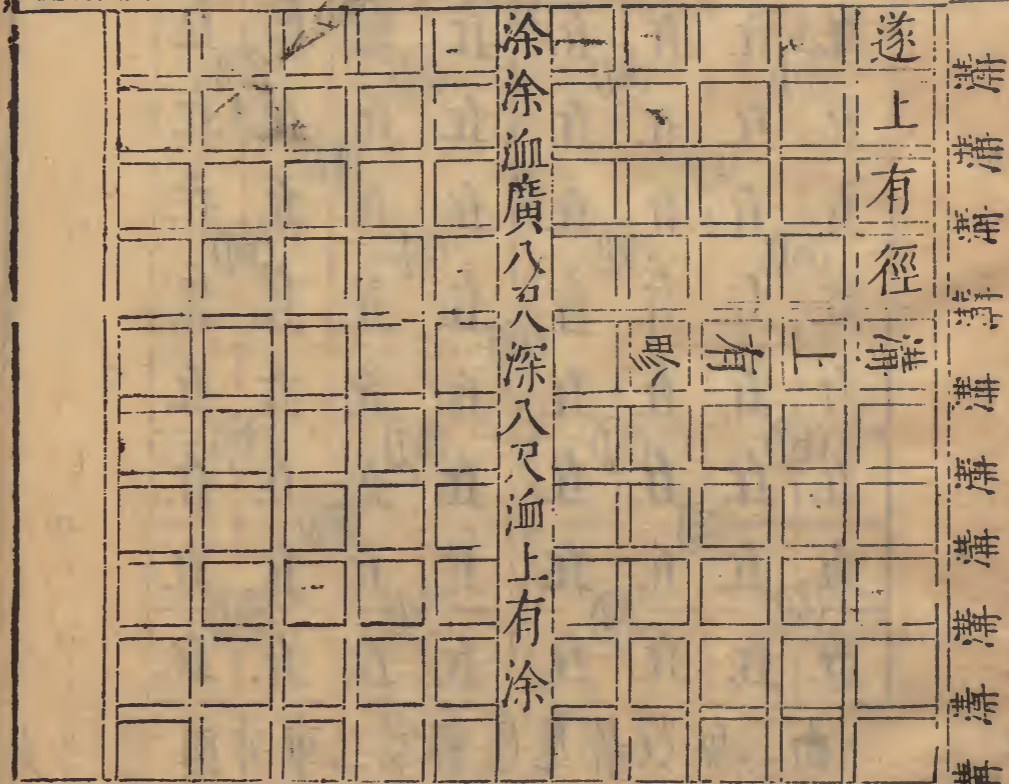 溝溝溝溝溝溝溝溝溝溝
遂上有徑
溝上有畛
涂涂洫廣八尺深八尺洫上有涂